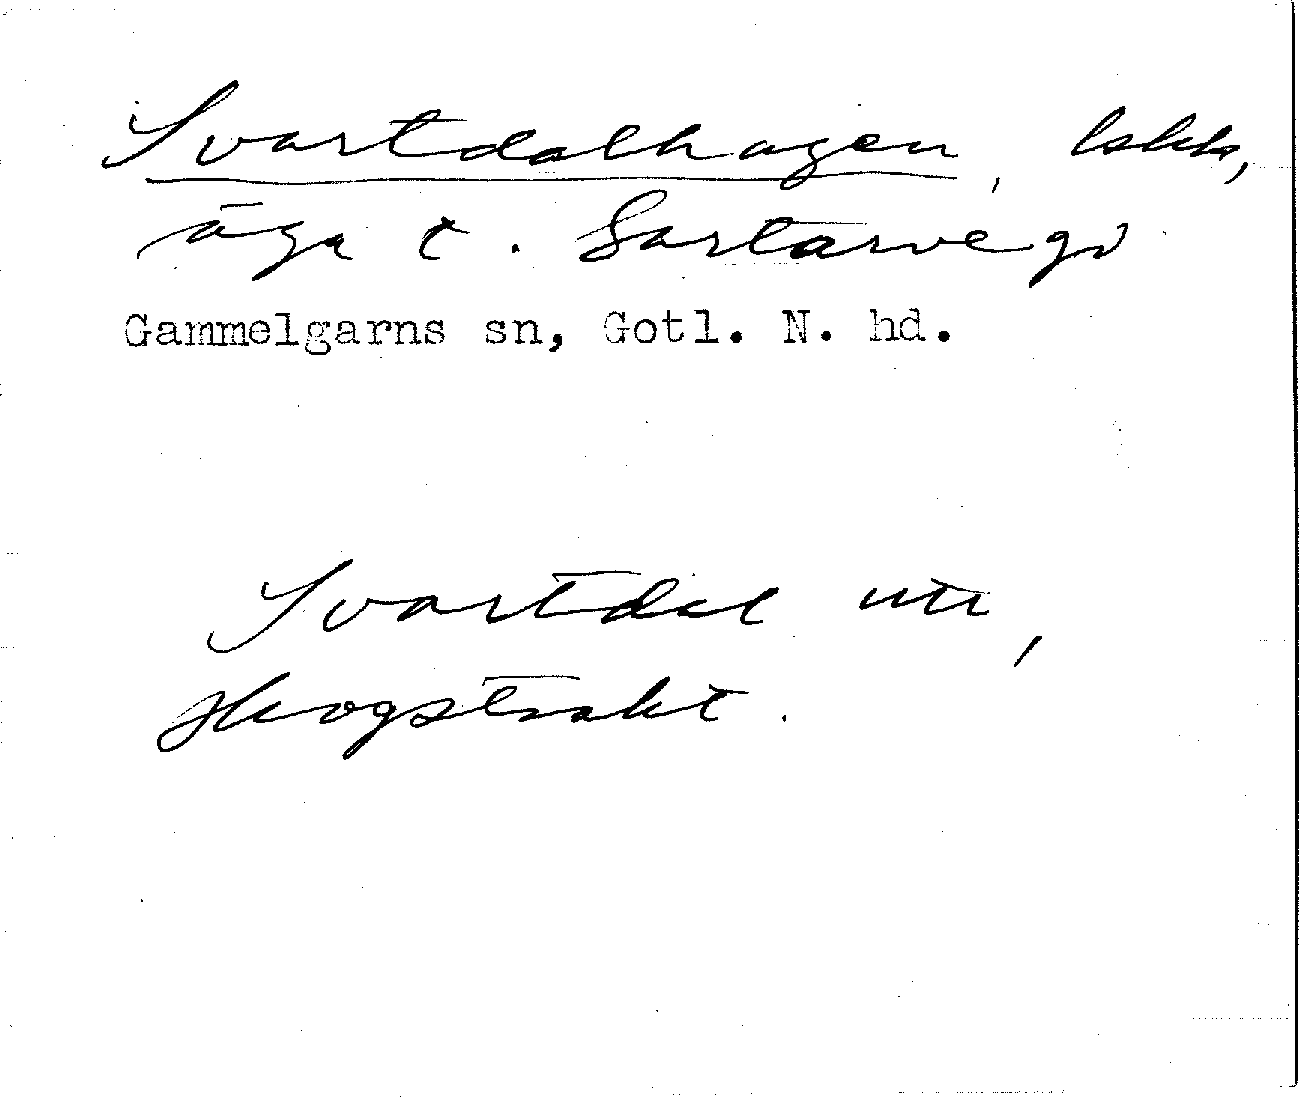 Svartdalhagen, bskk,
äga t. Sartarve gd
Gammelgarns sn, Gotl. N. hd.
Svartdal
Skogstrakt.